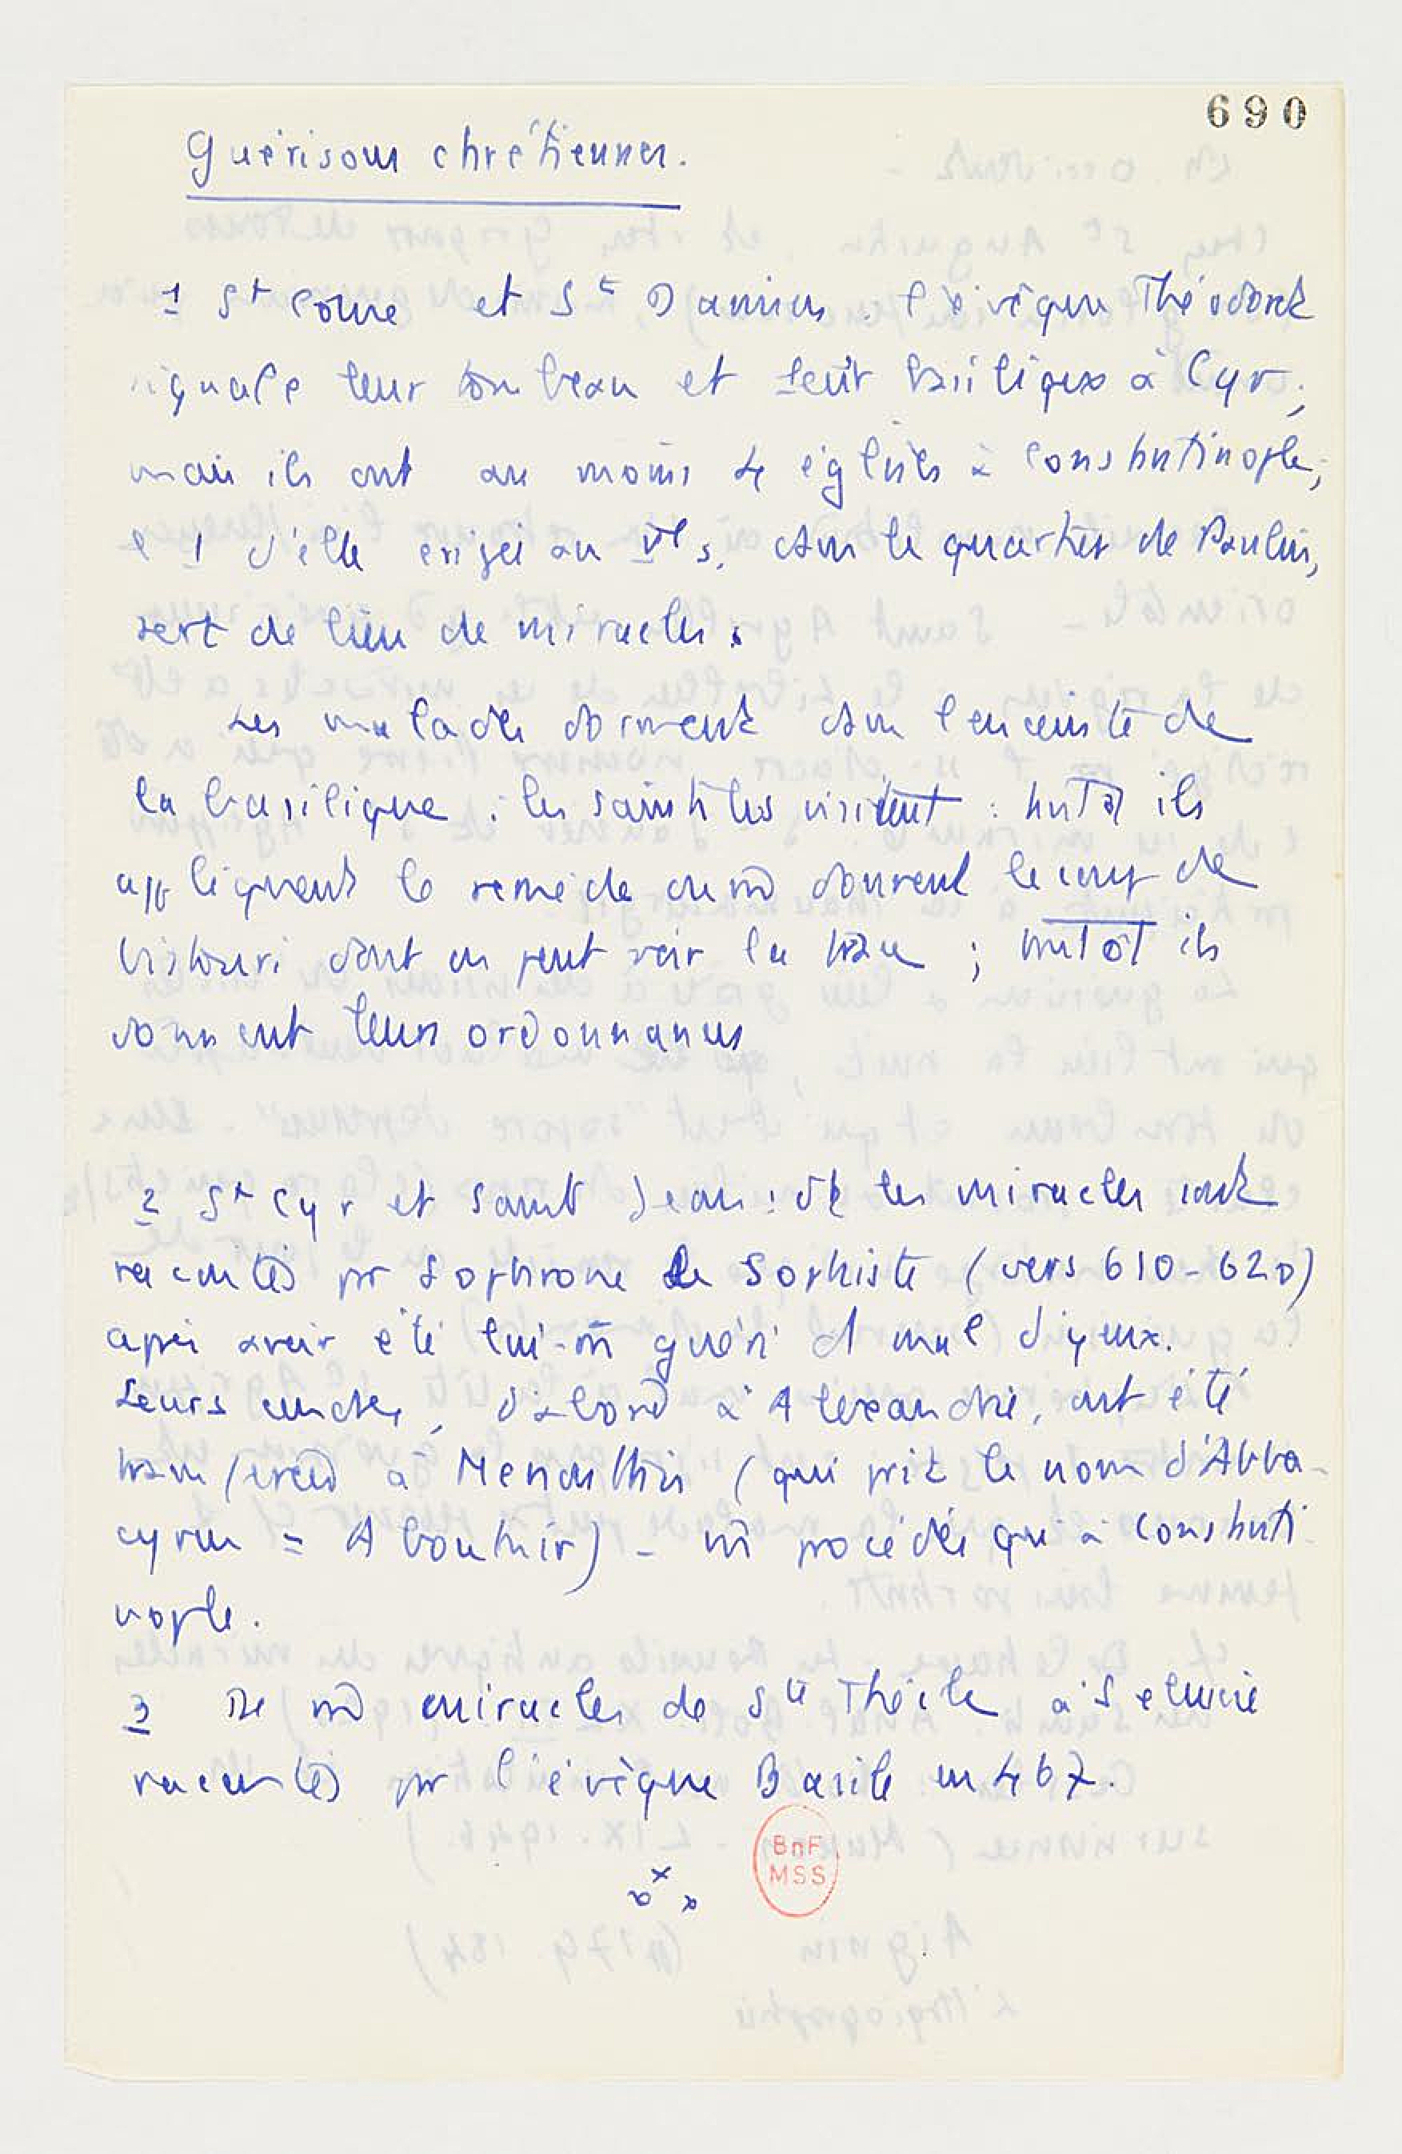 690
Guérisons chrétiennes.
1 St Come et St Damien. l'évêque Théodoret
signale leur tombeau et leur basilique à Cyr;
mais ils ont au moins 4 églises à Constantinople;
et 1 d'elle érigée au Ve s. dans le quartier de Paulin,
sert de lieu de miracles.
Les malades dorment dans l'enceinte de
la basilique : les saints les visitent : tantôt ils
appliquent le remède ou m̄ donnent le coup de
bistouri dont on peut voir la trace ; tantôt ils
donnent leurs ordonnances
2 St Cyr et Saint Jean : dt les miracles sont
racontés pr Sophrone le Sophiste (vers 610-620)
après avoir été lui-m̄ guéri d'1 mal d'yeux.
Leurs cendres, d'abord à Alexandrie, ont été
transférées à Menouthis (qui prit le nom d'Abba-
cyrum = Aboukir) - m̄ procédés qu'à Constanti-
nople.
3 De m̄ miracles de Ste Thècle à Séleucie
racontés pr l'évêque Basile en 467.
BnF
MSS